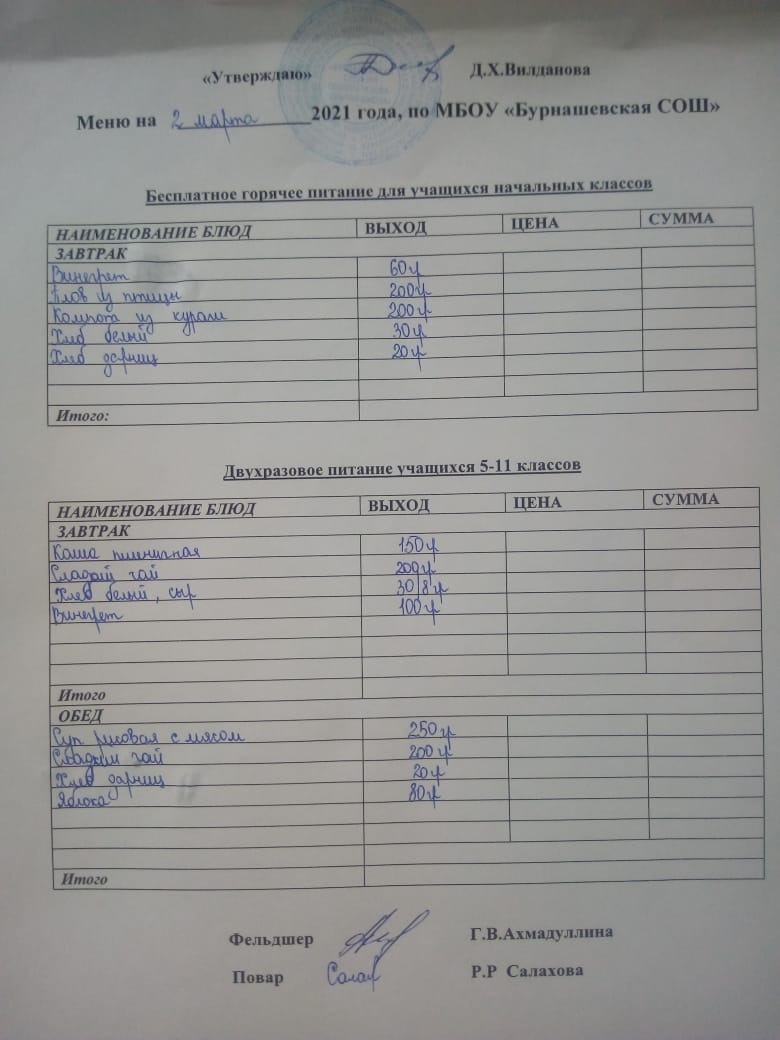 «Утверждаю» Д.Х.Вилданова
Меню на 2 марта 2021 года, по МБОУ «Бурнашевская СОШ»
Бесплатное горячее питание для учащихся начальных классов
НАИМЕНОВАНИЕ БЛЮД ВЫХОД ЦЕНА СУММА
ЗАВТРАК
Винегрет 60г
Плов из птицы 200г
Компота из кураги 200г
Хлеб белый 30г
Хлеб дарниц 20г
Итого:
Двухразовое питание учащихся 5-11 классов
НАИМЕНОВАНИЕ БЛЮД ВЫХОД ЦЕНА СУММА
ЗАВТРАК
Каша пшеничная 150г
Сладкий чай 200г
Хлеб белый, сыр 30/8г
Винегрет 100г
Итого
ОБЕД
Суп рисовая с мясом 250г
Сладкий чай 200г
Хлеб дарниц 20г
Яблока 80г
Итого
Фельдшер Г.В.Ахмадуллина
Повар Салах Р.Р Салахова